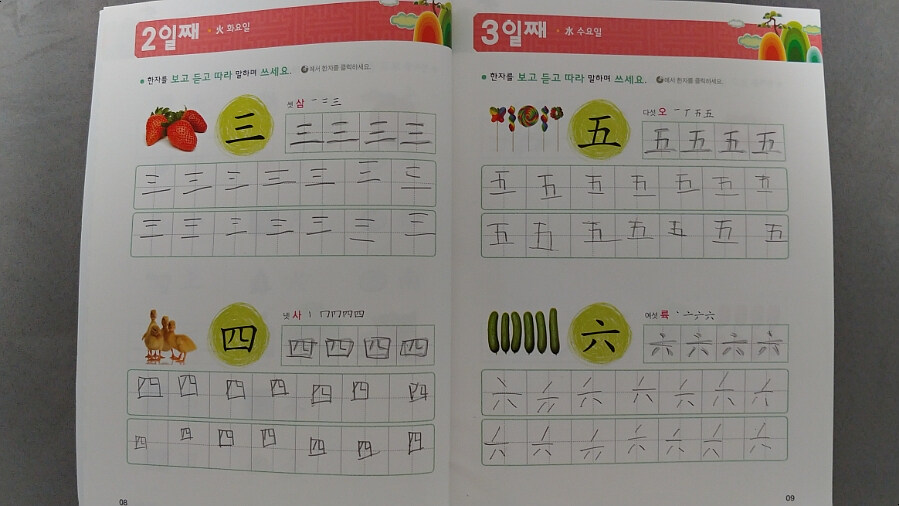 2일째 · 火 화요일
한자를 보고 듣고 따라 말하며 쓰세요. 에서 한자를 클릭하세요.
三 셋 삼 一 二 三
三 三 三 三
三 三 三 三 三 三 三
三 三 三 三 三 三 三
四 넷 사 丨 冂 冂 四 四
四 四 四 四
四 四 四 四 四 四 四
四 四 四 四 四 四 四
08
3일째 · 水 수요일
한자를 보고 듣고 따라 말하며 쓰세요. 에서 한자를 클릭하세요.
五 다섯 오 一 丁 五 五
五 五 五 五
五 五 五 五 五 五 五
五 五 五 五 五 五 五
六 여섯 륙 丶 亠 六 六
六 六 六 六
六 六 六 六 六 六 六
六 六 六 六 六 六 六
09